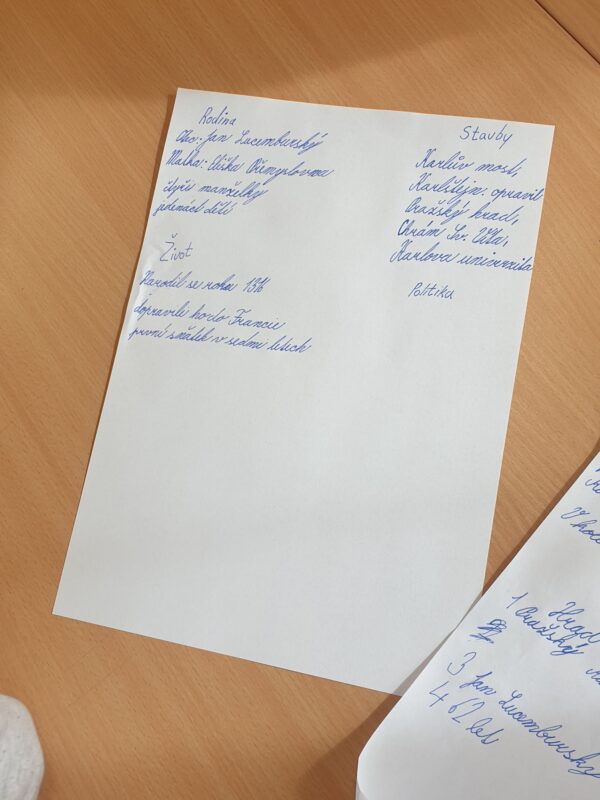 Rodina
Otec: Jan Lucemburský
Matka: Eliška Přemyslovna
čtyři manželky
jedenáct dětí
Život
Narodil se roku 1316
dopravili ho do Francie
první sňatek v sedmi letech
Stavby
Karlův most,
Karlštejn, opravil
Pražský hrad,
Chrám Sv. Víta,
Karlova univerzita
Politika
V
1 Hrad
Pražský
3 Jan Lucemburský
4 62 let